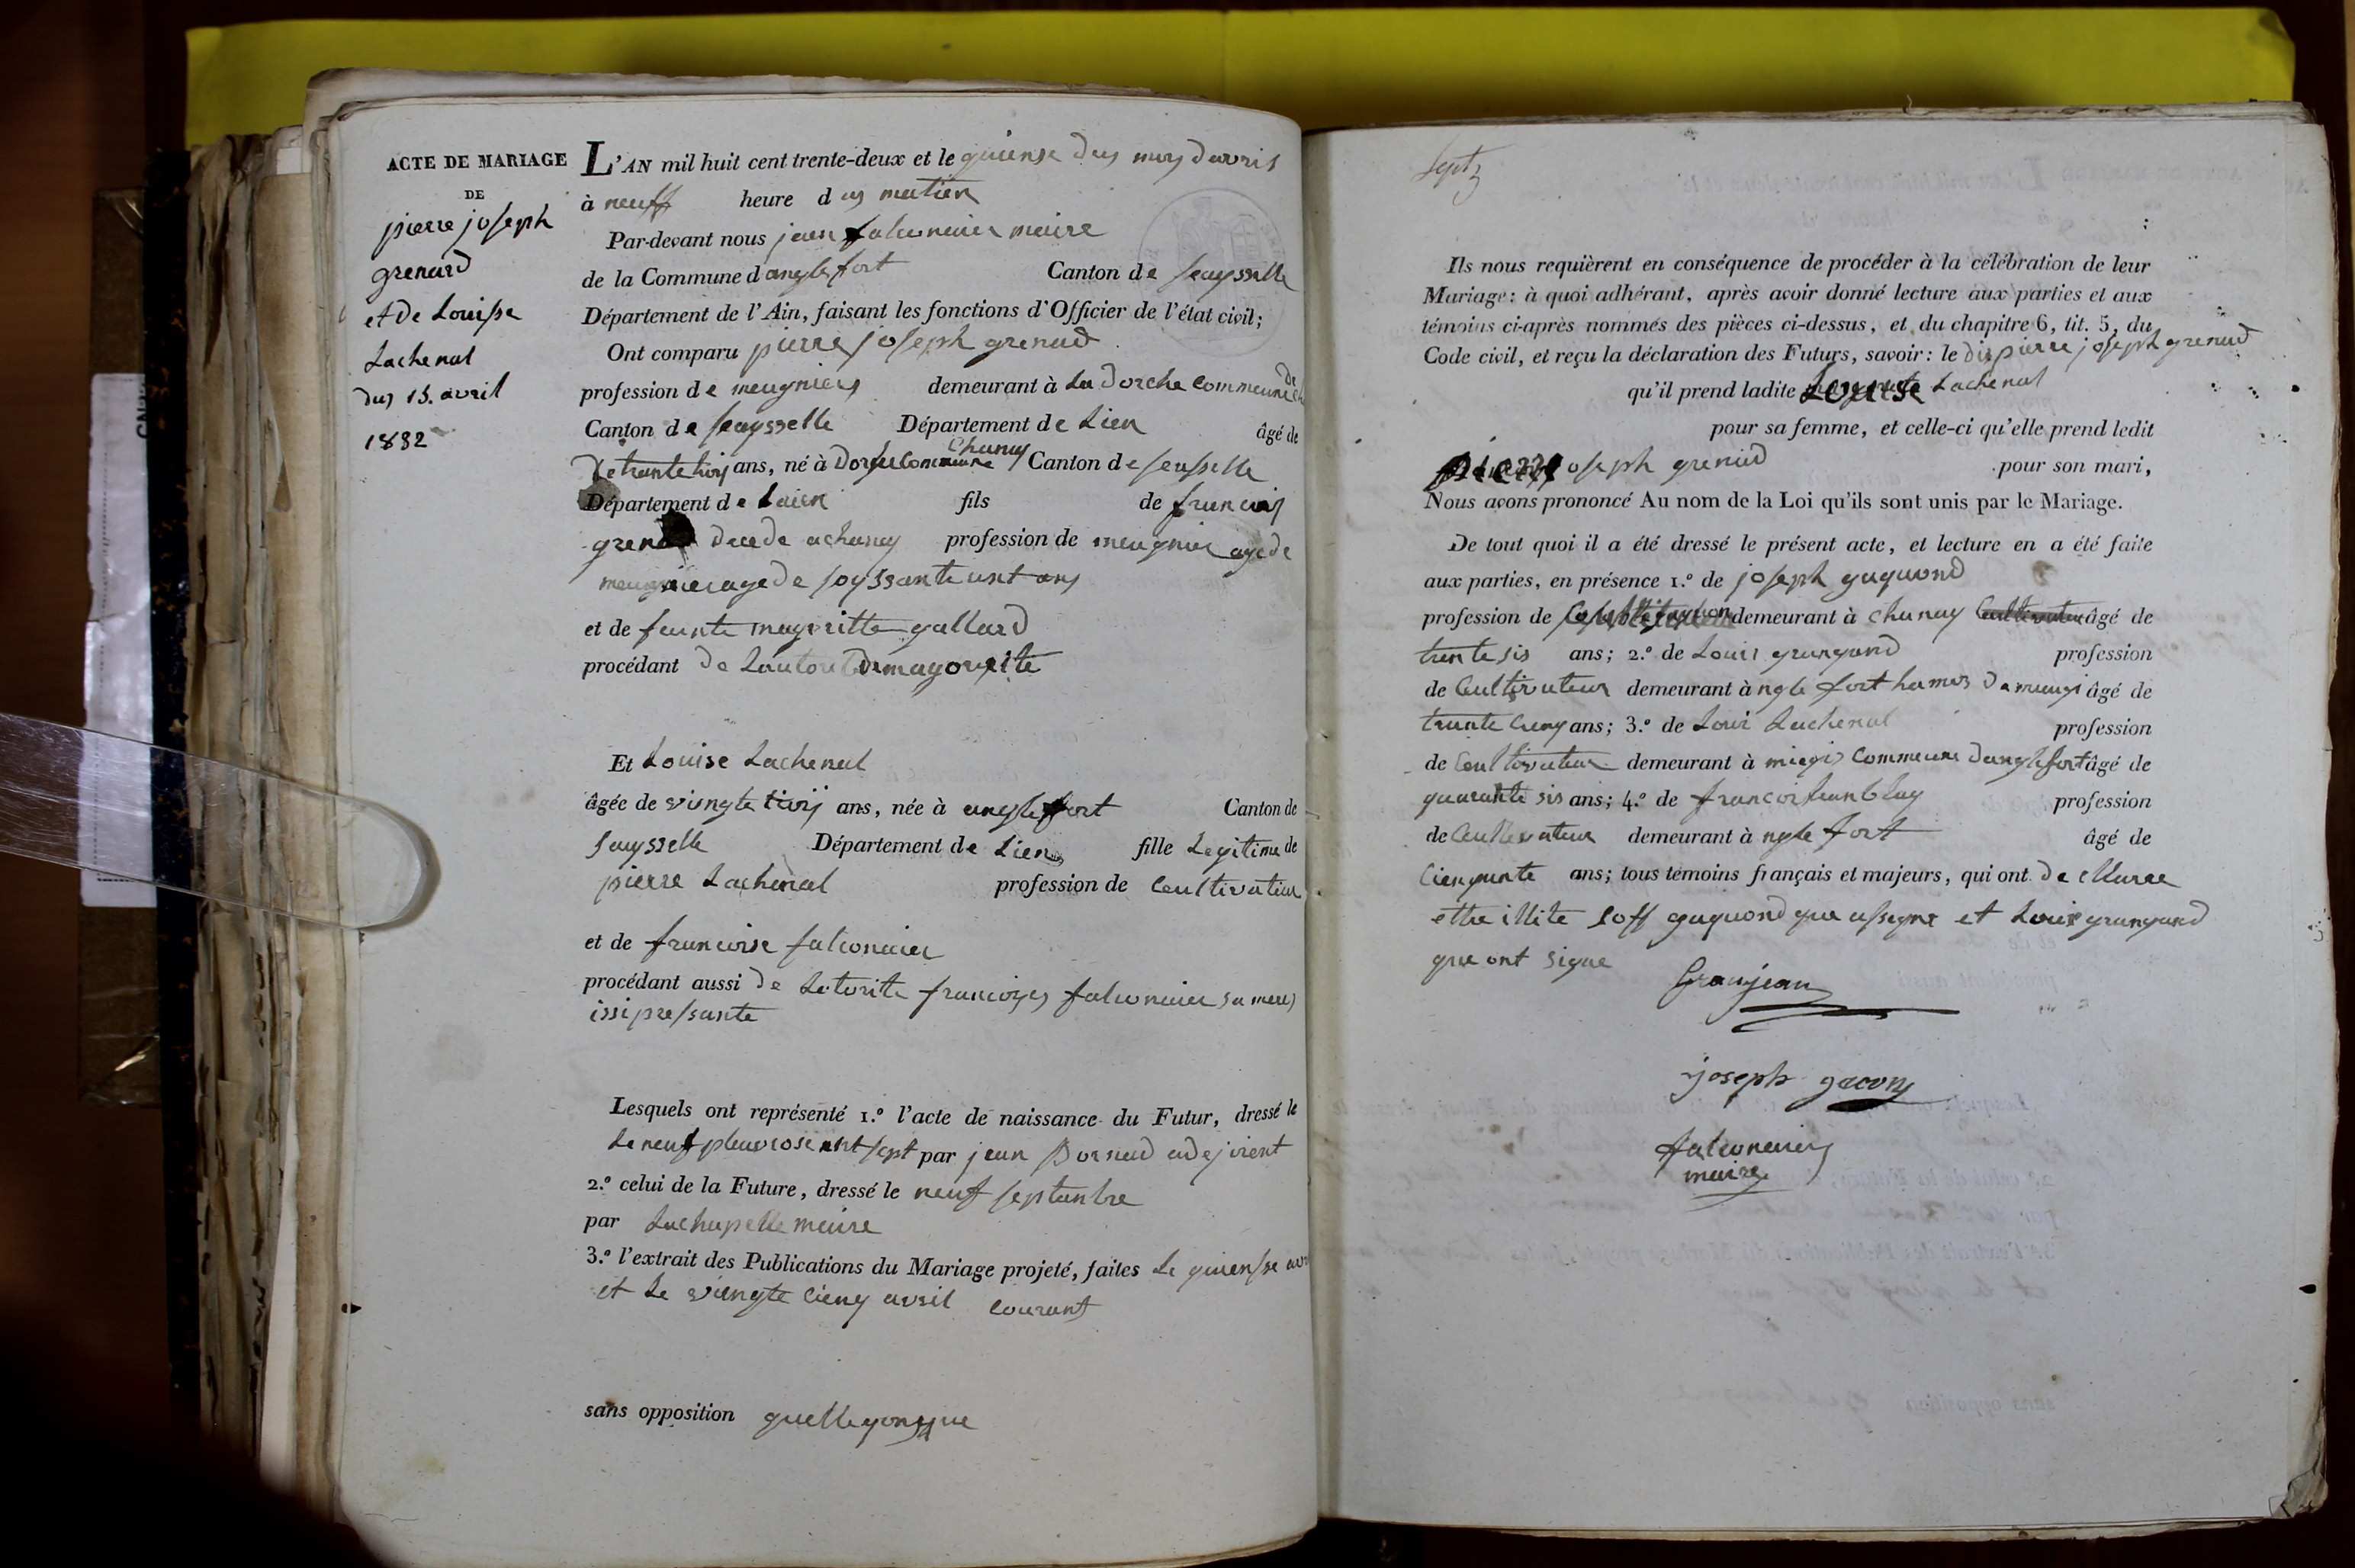 ACTE DE MARIAGE
DE
pierre joseph
grenard
et de Louise
Lachenal
dus 15. avril
1832
L'AN mil huit cent trente-deux et le quiense dus moys davris
à neuff heure dus matien
Par-devant nous jean falconnier maire
de la Commune d anglefort Canton de seaysselle
Département de l'Ain, faisant les fonctions d'Officier de l'état civil;
Ont comparu pierre joseph grenad
profession de meugniers demeurant à La dorche commeune de
Canton de seaysselle Département de Lien âgé de
de trante troij ans, né à Dorche Commeune Chanay Canton de seusselle
Département de Laien fils de francois
decede achanay profession de meugnier age de
meugnier age de soyssante unt ans
et de feunte magoritte gallard
procédant de Lautorite de magorite
Et Louise Lachenal
âgée de viengte troij ans, née à anglefort Canton de
saysselle Département de Lien fille Legitime de
pierre Lachenal profession de Ceultivateur
et de francoise falconnier
procédant aussi de Letorite francoyes falconnier sa mere
issi pressante
Lesquels ont représenté 1.º l'acte de naissance du Futur, dressé le
Le neuf pleuviose ant sept par jean Bornad adejoient
2.º celui de la Future, dressé le neuf septanbre
par Lachapelle meaire
3.º l'extrait des Publications du Mariage projeté, faites Le quiensse
et Le viengte cienq avril courant
sans opposition quelleqonque
Ils nous requièrent en conséquence de procéder à la célébration de leur
Mariage: à quoi adhérant, après avoir donné lecture aux parties et aux
témoins ci-après nommés des pièces ci-dessus, et du chapitre 6, tit. 5, du
Code civil, et reçu la déclaration des Futurs, savoir: le dis pierre joseph grenad
qu'il prend ladite Louise Lachenal
pour sa femme, et celle-ci qu'elle prend ledit
pierre joseph grenad pour son mari,
Nous avons prononcé Au nom de la Loi qu'ils sont unis par le Mariage.
De tout quoi il a été dressé le présent acte, et lecture en a été faite
aux parties, en présence 1.º de joseph gaquond
profession de demeurant à chanay âgé de
trente sis ans; 2.º de Louis grangand profession
de Ceultivateur demeurant à ngle fort hamos âgé de
trante cienq ans; 3.º de Loui Lachenal profession
de Ceultivateur demeurant à miegis commeune danglefort âgé de
quarante sis ans; 4.º de francois profession
de Ceultivateur demeurant à ngle fort âgé de
cienquante ans; tous témoins français et majeurs, qui ont de cllarre
ettre illite soff gaquond que assigne et Louis grangand
que ont signe
Granjean
joseph gacon
falconnier
maire